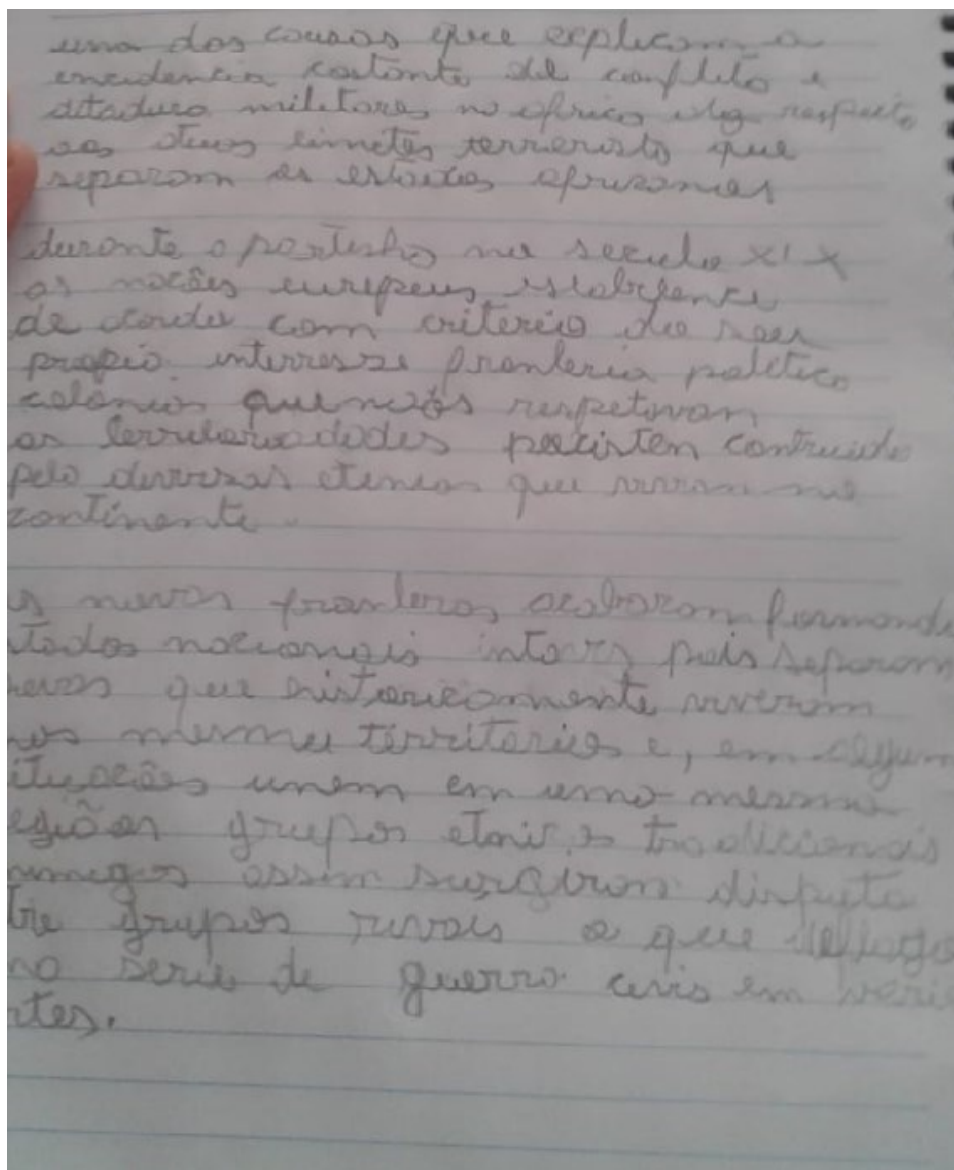 uma das causas que explicam a
incidencia costante de conflito e
ditadura militares no africa diz respeito
aos limetes terreristo que
separam os estados africanies
durante o partilha no seculo XIX
as nações europeus
de acordu com criterio do seu
propio interresse fronteria politico
colonios que nãos respetovam
as territoriadodes contruido
pelo diversas etenias que viviam no
continente.
s novas fronteros acabaram formando
tados nacionais pois separam
que historicamente viveram
mesmu territorios e, em algum
ituações unem em uma mesma
egiõas grupos etnicos tradicionais
nimigos assim surgiron disputa
tre grupos rivais o que
serie de guerro civis em
ites.